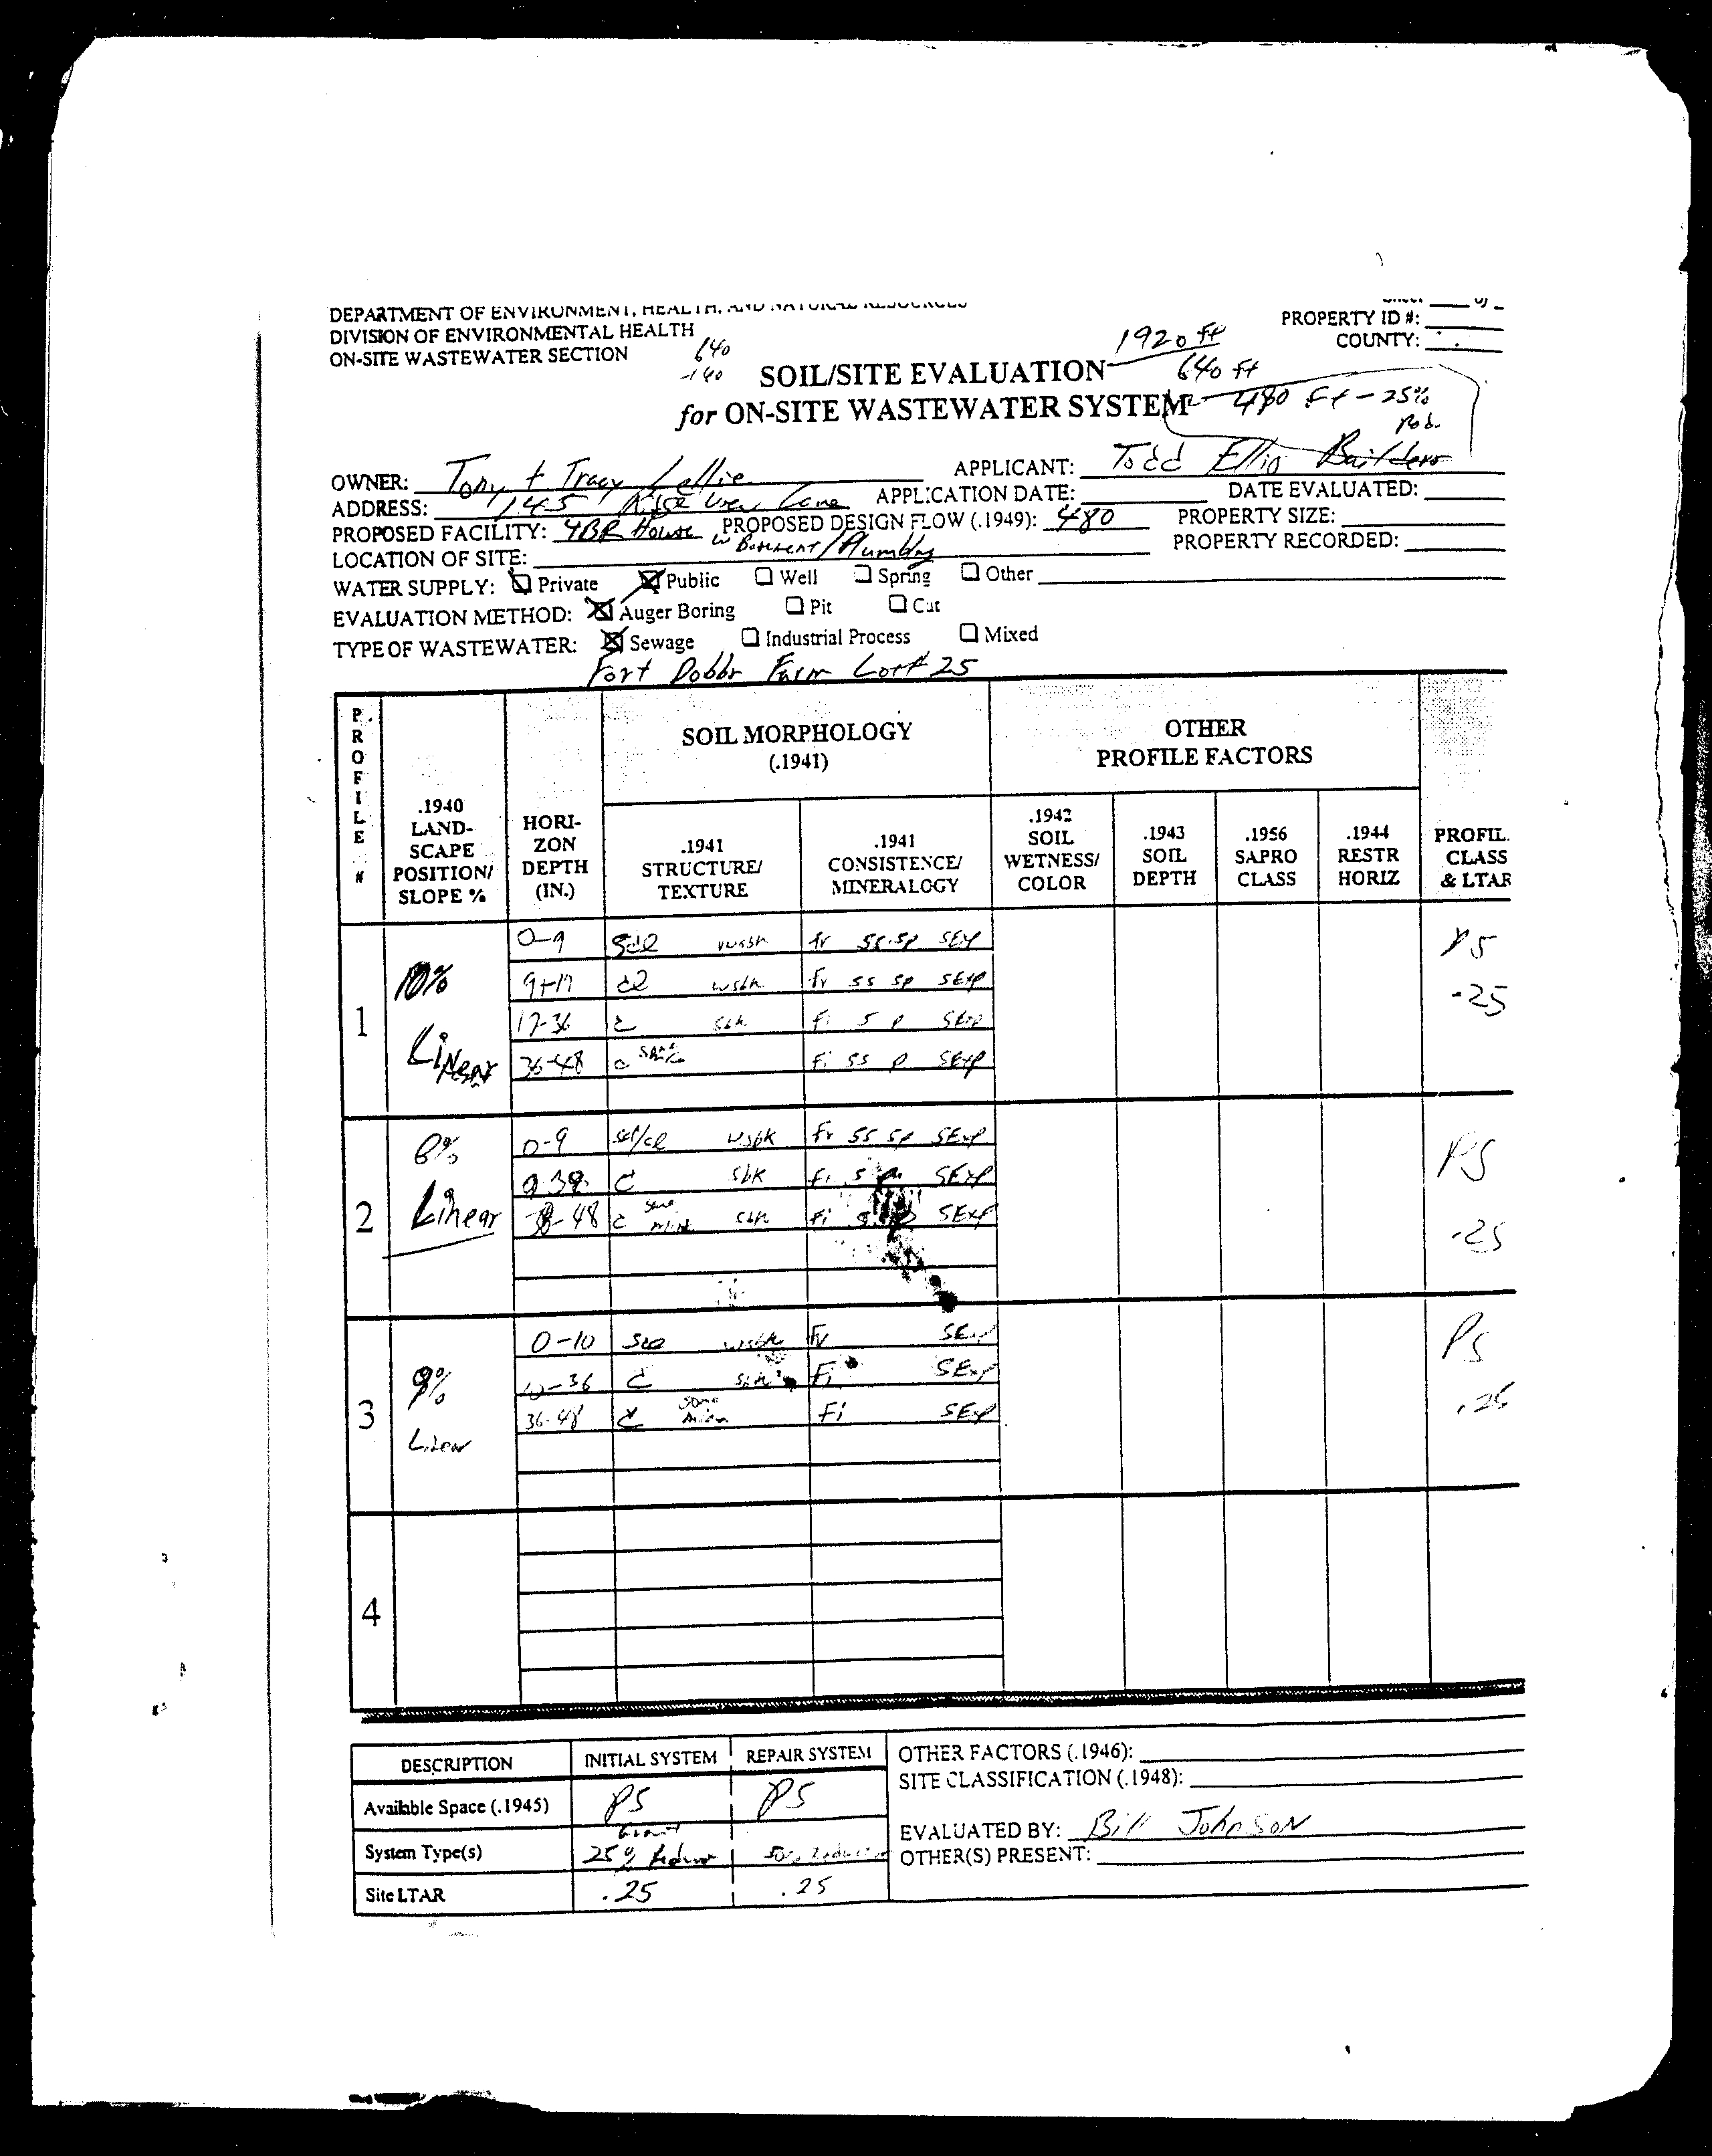 DEPARTMENT OF ENVIRONMENT, HEALTH, AND NATURAL RESOURCES
DIVISION OF ENVIRONMENTAL HEALTH
ON-SITE WASTEWATER SECTION
PROPERTY ID #:
COUNTY:
640
-160
1920 ft
640 ft
480 ft - 25%
SOIL/SITE EVALUATION
for ON-SITE WASTEWATER SYSTEM
OWNER: Tony + Tracy
APPLICANT: Todd Ellis Builders
ADDRESS: 145 Lane
APPLICATION DATE:
DATE EVALUATED:
PROPOSED FACILITY: 4BR House w Basement/Plumbing
PROPOSED DESIGN FLOW (.1949): 480
PROPERTY SIZE:
LOCATION OF SITE:
PROPERTY RECORDED:
WATER SUPPLY: Private Public Well Spring Other
EVALUATION METHOD: Auger Boring Pit Cut
TYPE OF WASTEWATER: Sewage Industrial Process Mixed
Fort Dobbs Farm Lot# 25
PROFILE #
.1940 LAND-SCAPE POSITION/ SLOPE %
HORI-ZON DEPTH (IN.)
SOIL MORPHOLOGY (.1941)
.1941 STRUCTURE/ TEXTURE
.1941 CONSISTENCE/ MINERALOGY
OTHER PROFILE FACTORS
.1942 SOIL WETNESS/ COLOR
.1943 SOIL DEPTH
.1956 SAPRO CLASS
.1944 RESTR HORIZ
PROFIL. CLASS & LTAR
1
10%
Linear
0-9 scl fr ss sp SExp
9-17 cl wsbk fr ss sp SExp
17-36 c sbk fi s p SExp
36-48 c fi ss p SExp
PS
.25
2
8%
Linear
0-9 scl/cl wsbk fr ss sp SExp
9-38 c sbk fi s p SExp
38-48 c some mica sbk fi SExp
PS
.25
3
9%
Linear
0-10 scl wsbk fr SExp
10-36 c sbk Fi SExp
36-48 c some mica Fi SExp
PS
.25
4
DESCRIPTION INITIAL SYSTEM REPAIR SYSTEM
Available Space (.1945) PS PS
System Type(s) 25%
Site LTAR .25 .25
OTHER FACTORS (.1946):
SITE CLASSIFICATION (.1948):
EVALUATED BY: Bill Johnson
OTHER(S) PRESENT: